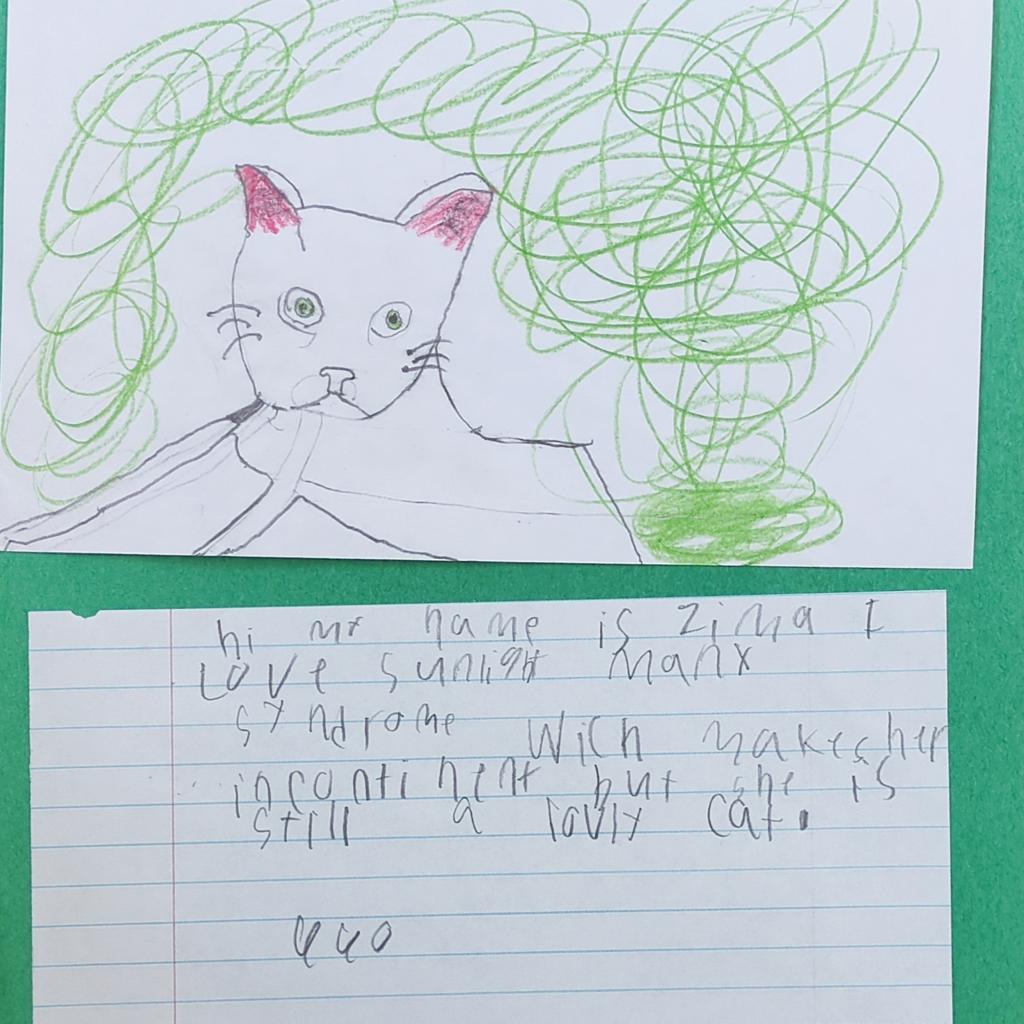 hi my name is zima I
Love sunlight Manx
syndrome Wich makes her
incontinent but she is
still a lovly cat.